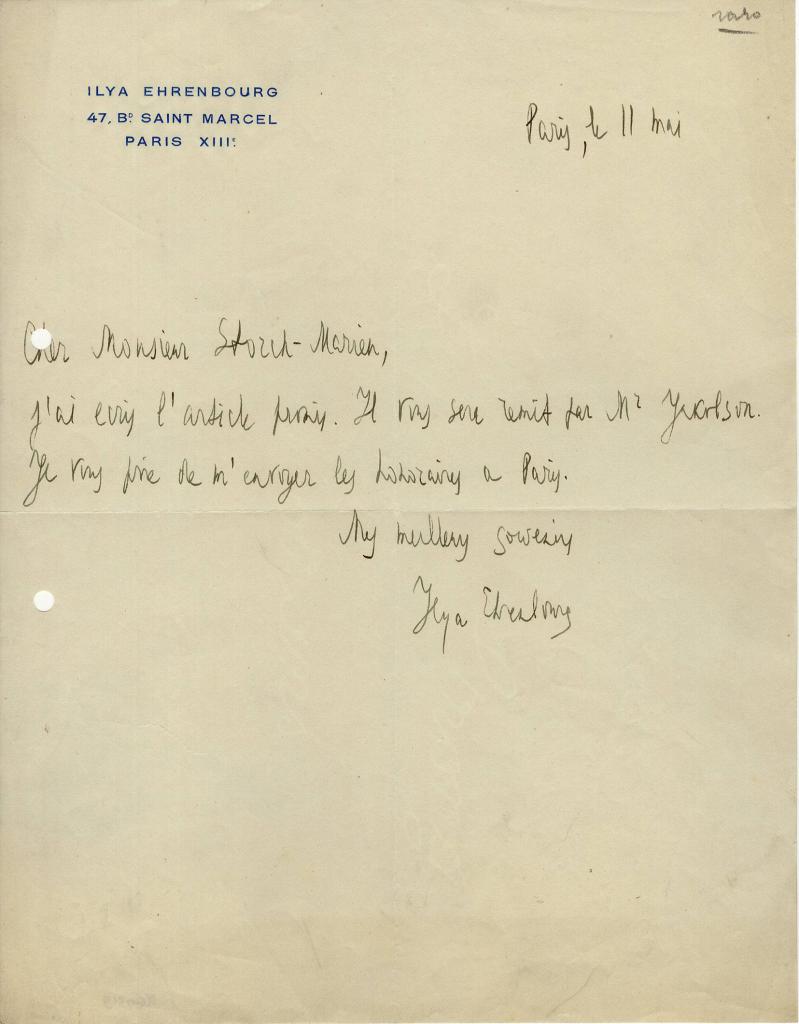 raro
ILYA EHRENBOURG
47, Bᴅ SAINT MARCEL
PARIS XIIIᵉ
Paris, le 11 mai
Cher Monsieur Storck-Marien,
j'ai ecris l'article promis. Il vous sera remit par Mr Jakobson.
Je vous prie de m'envoyer les honoraires a Paris.
Mes meilleurs souvenirs
Ilya Ehrenbourg